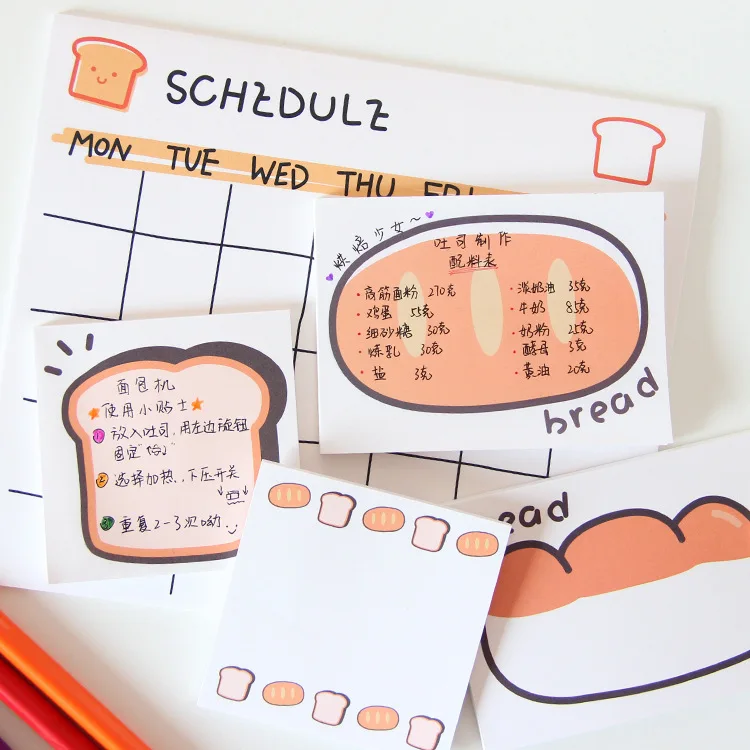 SCHEDULE
MON TUE WED THU FRI
烘焙少女~
吐司制作
配料表
·高筋面粉 270克
·鸡蛋 55克
·细砂糖 30克
·炼乳 30克
·盐 3克
·淡奶油 35克
·牛奶 85克
·奶粉 25克
·酵母 3克
·黄油 20克
bread
面包机
使用小贴士
1 放入吐司，用左边旋钮
固定
2 选择加热，下压开关
3 重复2-3次呦
ead